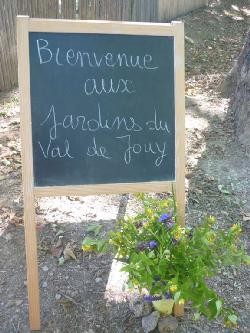 Bienvenue
aux
Jardins du
Val de Jouy